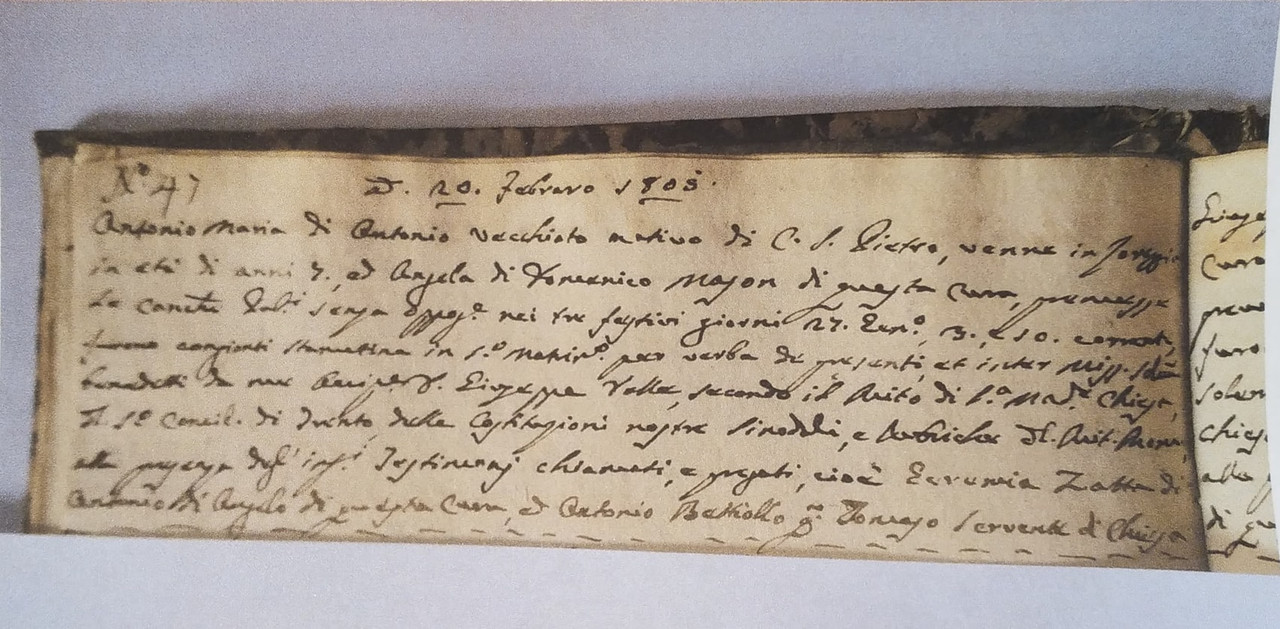 N.º 47
D. 20. Febraro 1805.
Antonio Maria di Antonio Vecchioto nativo di C. S. Pietro, venne in
in età di anni 7., ed Angela di Domenico Mason di questa Cura, premesse
Le canch.e senza Oppos.e nei tre festivi giorni 27. Gen.º, 3., e 10. corrente,
furono congionti stamattina in S.º Matrim.º per verba de presenti, et inter Miss.
benedetti da me Giuseppe Valle, secondo il Rito di S.ª Mad.e Chiesa,
Il S.º Concil. di Trento, delle Costituzioni nostre Sinodali, e Rubriche del Rit. Rom.
alla presenza degl' inf.i Testimonj chiamati, e pregati, cioè Geremia Zatta di
Antonio di Angelo di questa Cura, ed Antonio Battiollo q.m Tomaso Servente di Chiesa
Cura
alla
di qu